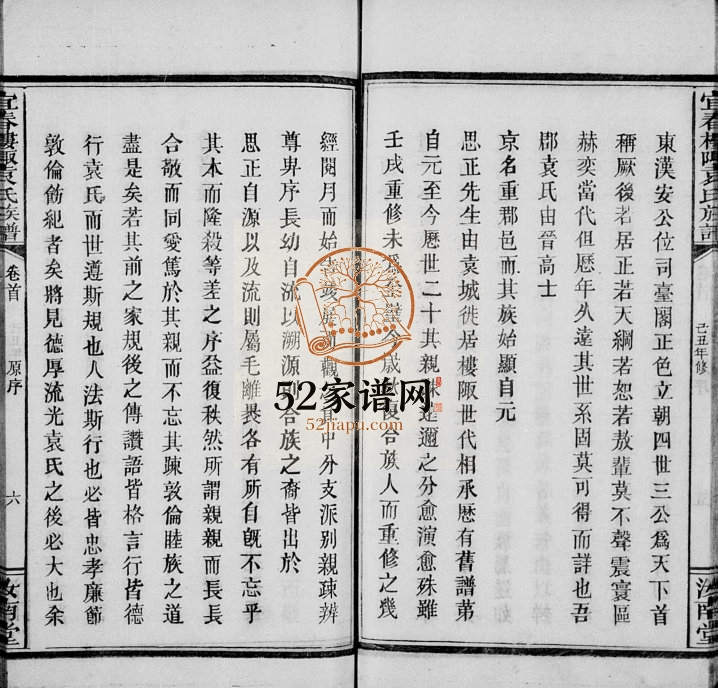 宜春樓陬袁氏族譜
己丑年修
汝南堂
東漢安公位司臺閣正色立朝四世三公為天下首
稱厥後若居正若天綱若恕若敖輩莫不聲震寰區
赫奕當代但歷年久遠其世系固莫可得而詳也吾
郡袁氏由晉高士
京名重郡邑而其族始顯自元
思正先生由袁城徙居樓陬世代相承歷有舊譜第
自元至今歷世二十其親疎遠邇之分愈演愈殊雖
壬戌重修未為今歲秋復合族人而重修之幾
經閱月而始觀其中分支派別親疎辨
尊卑序長幼自流以溯源合族之裔皆出於
思正自源以及流則屬毛離裏各有所自既不忘乎
其本而隆殺等差之序益復秩然所謂親親而長長
合敬而同愛篤於其親而不忘其疎敦倫睦族之道
盡是矣若其前之家規後之傳讚語皆格言行皆德
行袁氏而世遵斯規也人法斯行也必皆忠孝廉節
敦倫飭紀者矣將見德厚流光袁氏之後必大也余
宜春樓陬袁氏族譜
卷首
原序
六
汝南堂
52家谱网
52jiapu.com